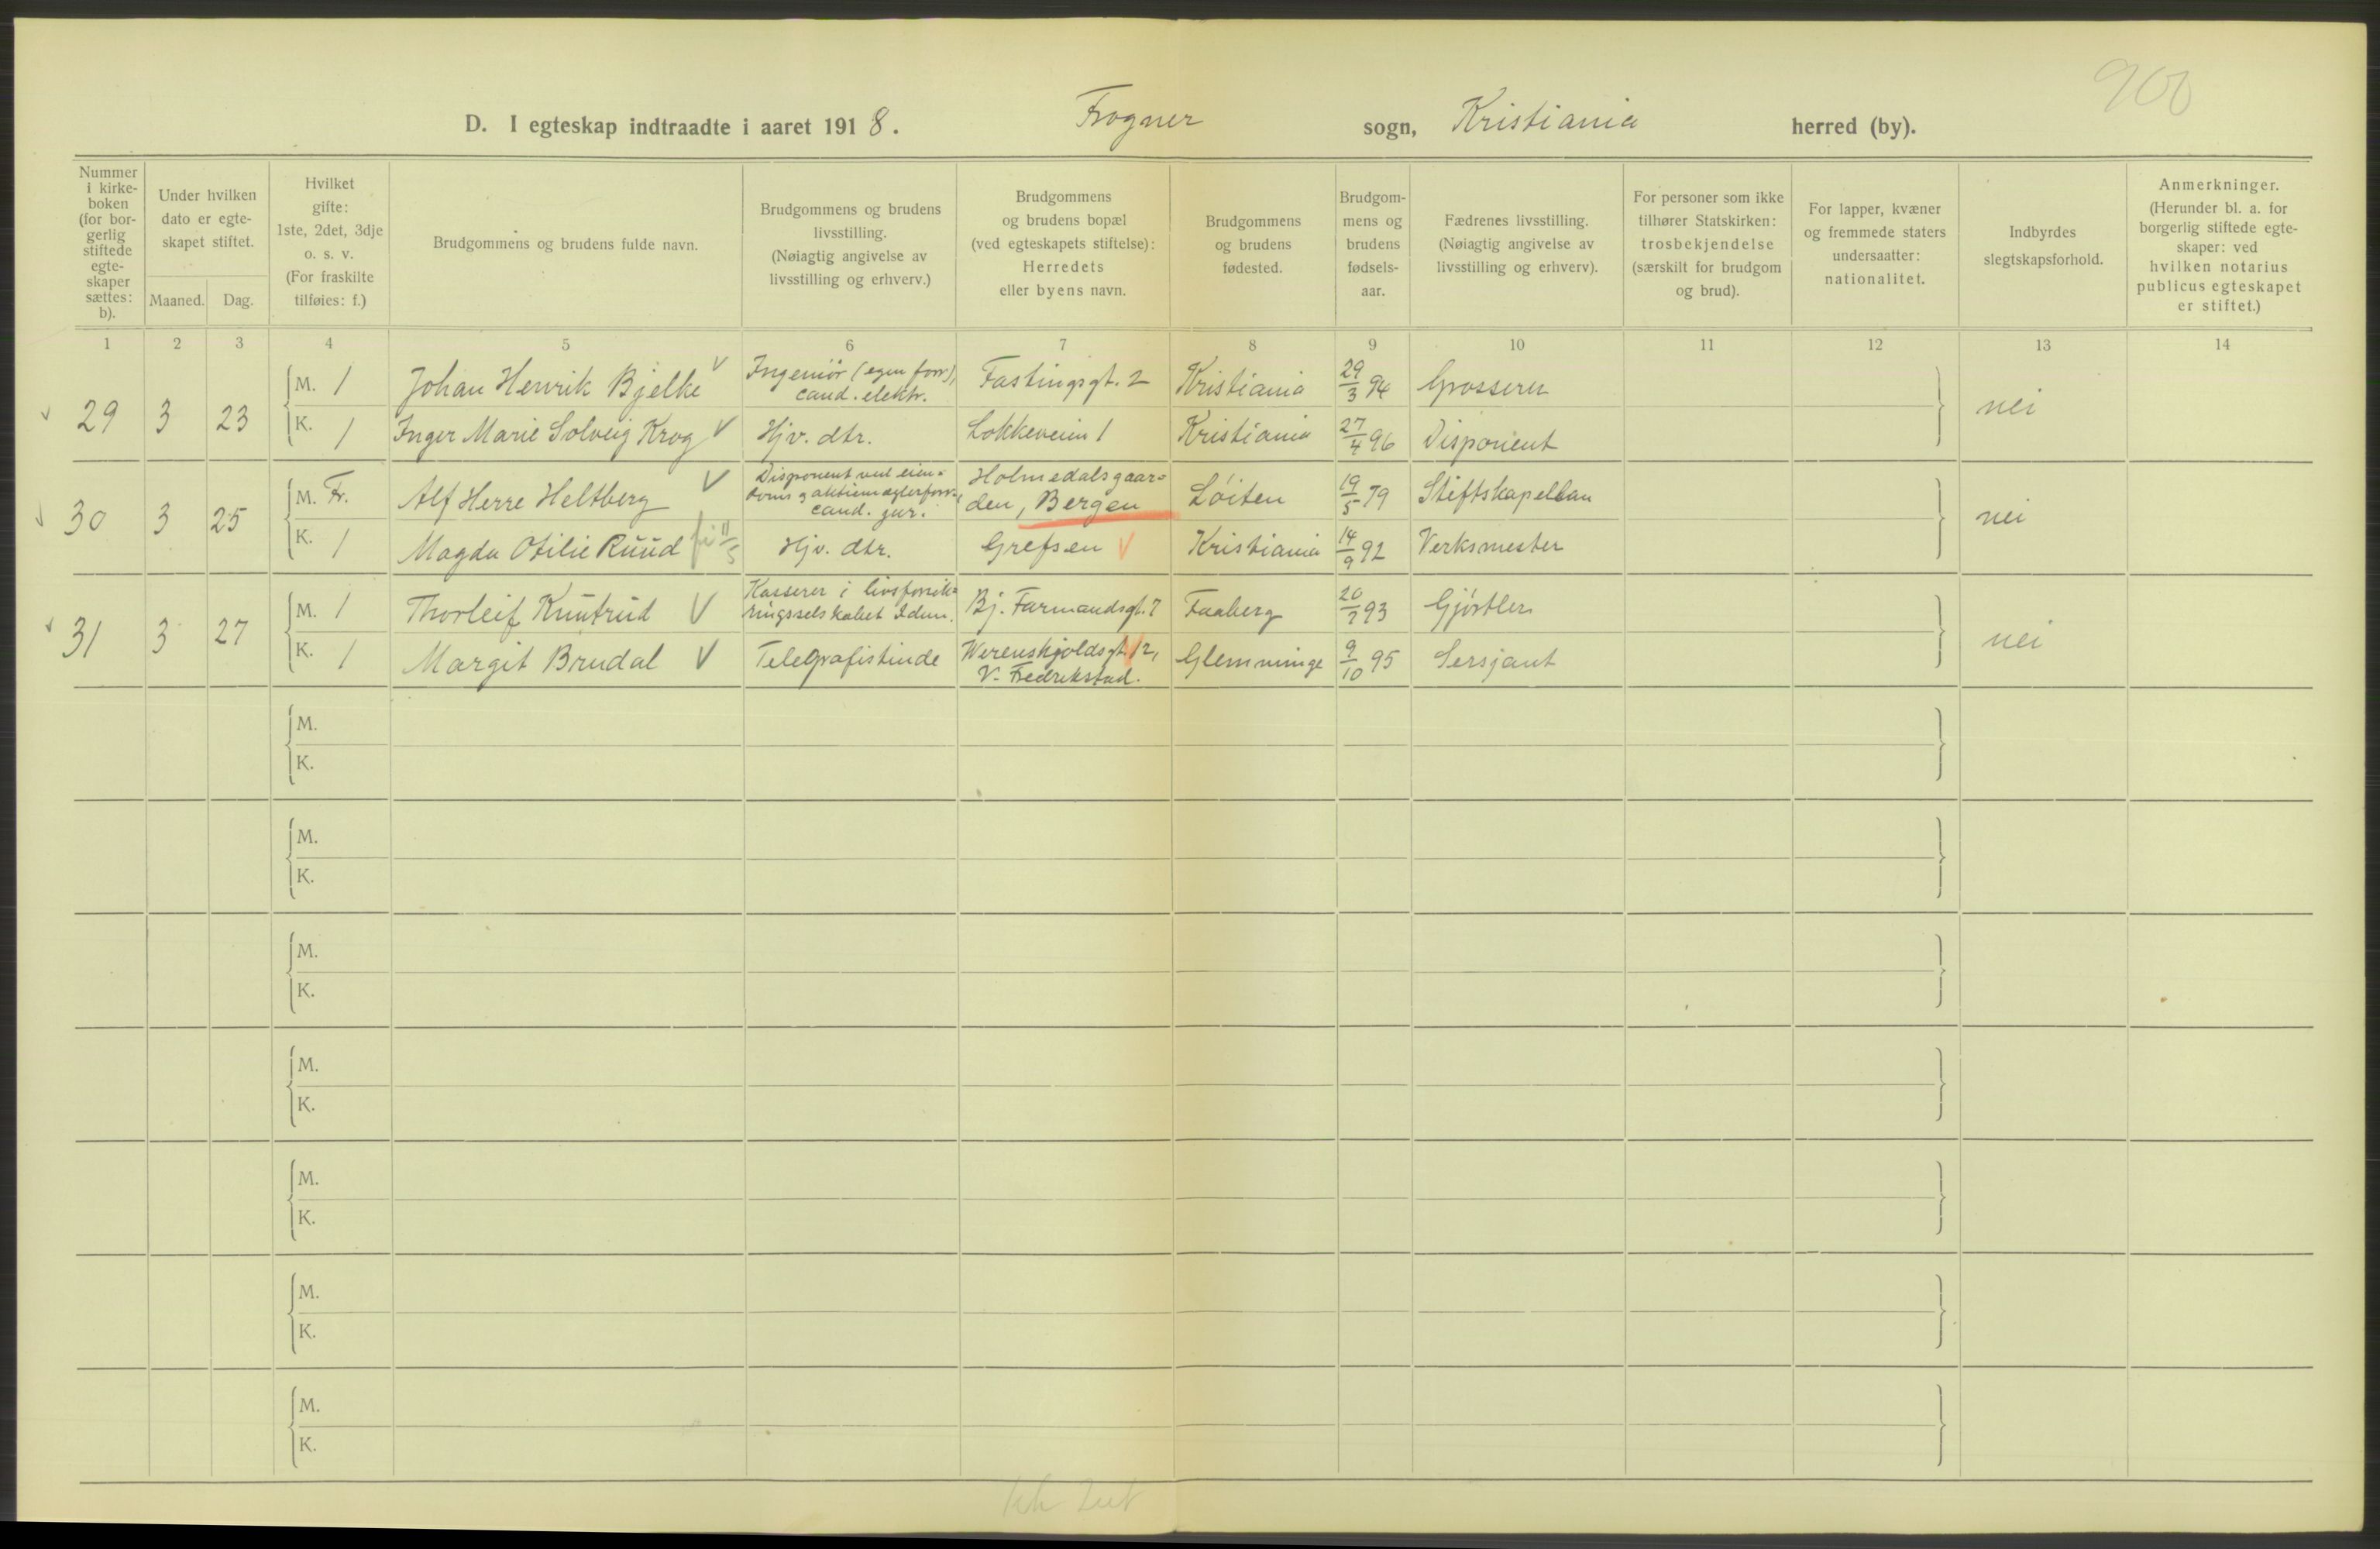 900
D. I egteskap indtraadte i aaret 1918. Frogner sogn, Kristiania herred (by).
Nummer i kirke- boken (for bor- gerlig stiftede egte- skaper sættes: b).
Under hvilken dato er egte- skapet stiftet.
Maaned. Dag.
Hvilket gifte: 1ste, 2det, 3dje o. s. v. (For fraskilte tilføies: f.)
Brudgommens og brudens fulde navn.
Brudgommens og brudens livsstilling. (Nøiagtig angivelse av livsstilling og erhverv.)
Brudgommens og brudens bopæl (ved egteskapets stiftelse): Herredets eller byens navn.
Brudgommens og brudens fødested.
Brudgom- mens og brudens fødsels- aar.
Fædrenes livsstilling. (Nøiagtig angivelse av livsstilling og erhverv).
For personer som ikke tilhører Statskirken: trosbekjendelse (særskilt for brudgom og brud).
For lapper, kvæner og fremmede staters undersaatter: nationalitet.
Indbyrdes slegtskapsforhold.
Anmerkninger. (Herunder bl. a. for borgerlig stiftede egte- skaper: ved hvilken notarius publicus egteskapet er stiftet.)
1 2 3 4 5 6 7 8 9 10 11 12 13 14
29 3 23 M. 1 Johan Henrik Bjelke Ingeniör (egen forr), cand. elektr. Fastingsgt. 2 Kristiania 29/3 94 Grosserer nei
K. 1 Inger Marie Solveig Krog Hjv. dtr. Lökkeveien 1 Kristiania 27/4 96 Disponent
30 3 25 M. Fr. Alf Herre Heltberg Disponent ved eien- doms & aktiemæglerforr., cand. jur. Holmedalsgaar- den, Bergen Löiten 19/5 79 Stiftskapellan nei
K. 1 Magda Otilie Ruud 11/5 Hjv. dtr. Grefsen Kristiania 14/9 92 Verksmester
31 3 27 M. 1 Thorleif Knutrud Kasserer i livsforsik- ringsselskabet Idun. Bj. Farmandsgt. 7 Faaberg 20/7 93 Gjörtler nei
K. 1 Margit Brudal Telegrafistinde Werenskjoldsgt. 12, V. Fredrikstad. Glemminge 9/10 95 Sersjant
M.
K.
M.
K.
M.
K.
M.
K.
M.
K.
M.
K.
M.
K.